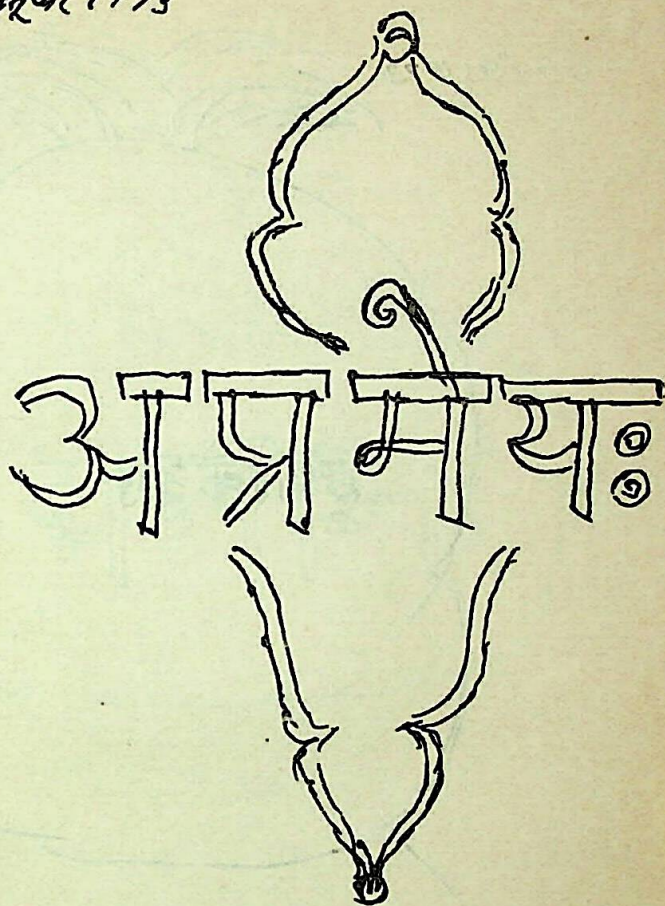 अप्रमेयः